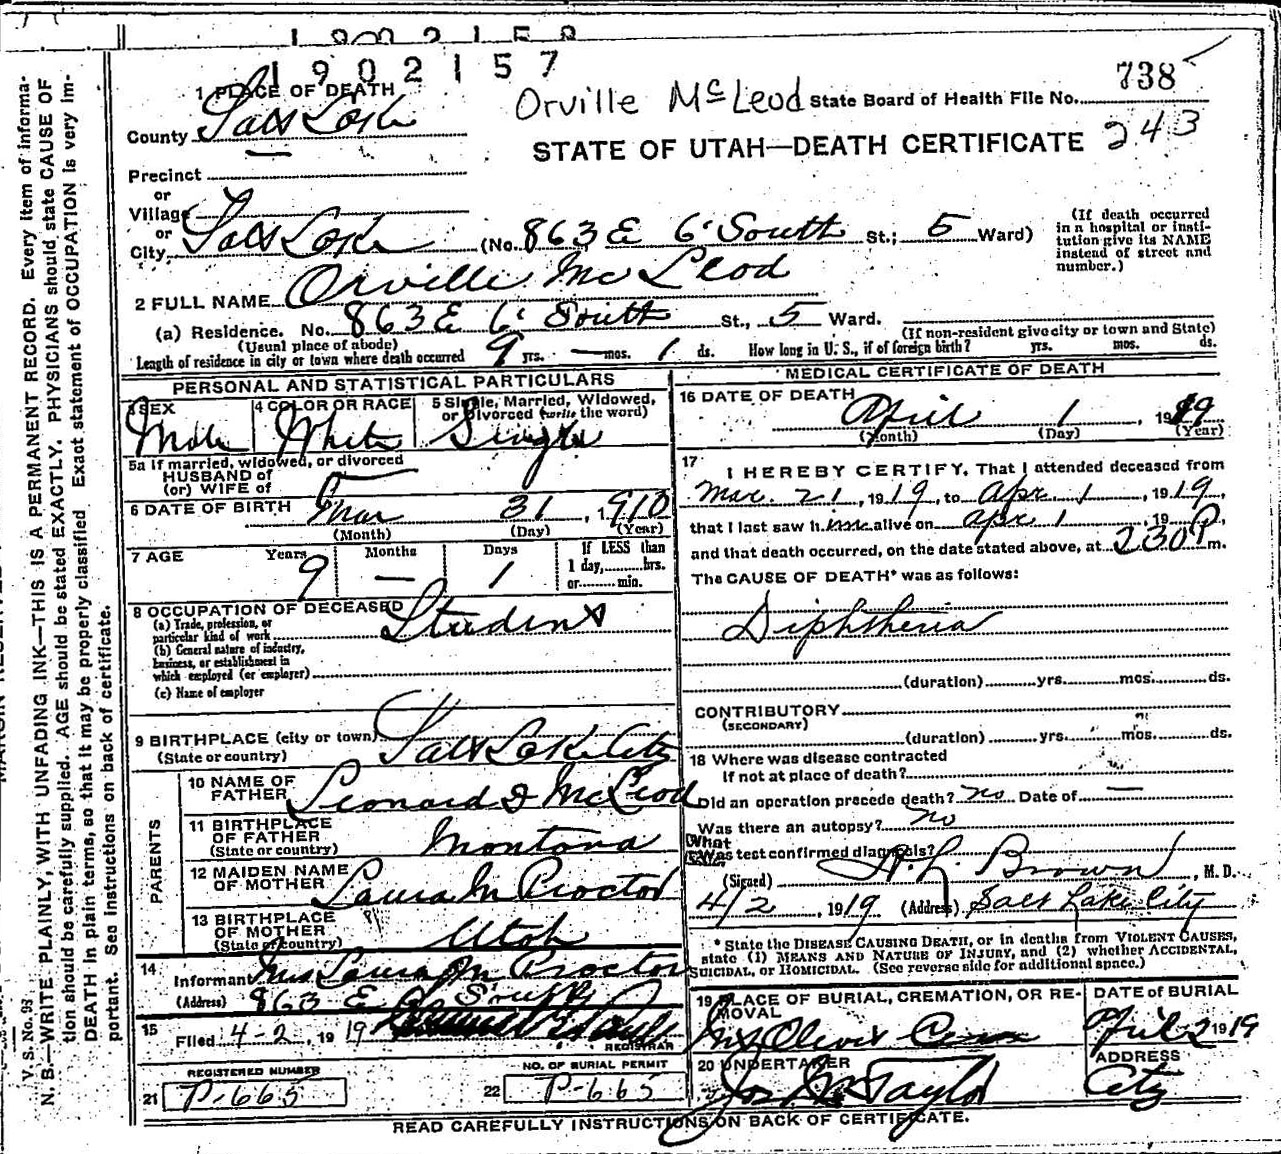 1902158
1902157
Orville McLeod State Board of Health File No. 738
243
STATE OF UTAH—DEATH CERTIFICATE
1 PLACE OF DEATH
County Salt Lake
Precinct
or
Village
or
City Salt Lake (No. 863 E 6' South St.; 5 Ward)
(If death occurred in a hospital or institution give its NAME instead of street and number.)
2 FULL NAME Orville McLeod
(a) Residence. No. 863 E 6' South St., 5 Ward.
(Usual place of abode) (If non-resident give city or town and State)
Length of residence in city or town where death occurred 9 yrs. — mos. 1 ds. How long in U. S., if of foreign birth? yrs. mos. ds.
PERSONAL AND STATISTICAL PARTICULARS
3 SEX Male
4 COLOR OR RACE White
5 Single, Married, Widowed, or Divorced (write the word) Single
5a If married, widowed, or divorced
HUSBAND of
(or) WIFE of
6 DATE OF BIRTH Mar 31, 1910
(Month) (Day) (Year)
7 AGE Years 9 Months — Days 1 If LESS than 1 day, hrs. or min.
8 OCCUPATION OF DECEASED Student
(a) Trade, profession, or particular kind of work
(b) General nature of industry, business, or establishment in which employed (or employer)
(c) Name of employer
9 BIRTHPLACE (city or town) Salt Lake City
(State or country)
PARENTS
10 NAME OF FATHER Leonard I McLeod
11 BIRTHPLACE OF FATHER (State or country) Montana
12 MAIDEN NAME OF MOTHER Laura M Proctor
13 BIRTHPLACE OF MOTHER (State or country) Utah
14 Informant Mrs Laura M Proctor
(Address) 863 E 6 South
15 Filed 4-2, 1919
REGISTRAR
REGISTERED NUMBER
21 P-665
NO. OF BURIAL PERMIT
22 P-665
MEDICAL CERTIFICATE OF DEATH
16 DATE OF DEATH
April 1, 1919
(Month) (Day) (Year)
17 I HEREBY CERTIFY, That I attended deceased from
Mar. 21, 1919, to Apr 1, 1919,
that I last saw him alive on Apr 1, 19
and that death occurred, on the date stated above, at 230 P m.
The CAUSE OF DEATH* was as follows:
Diphtheria
(duration) yrs. mos. ds.
CONTRIBUTORY
(SECONDARY)
(duration) yrs. mos. ds.
18 Where was disease contracted
If not at place of death?
Did an operation precede death? no Date of —
Was there an autopsy? no
What test confirmed diagnosis?
(Signed) H. L. Brown, M. D.
4/2, 1919 (Address) Salt Lake City
* State the DISEASE CAUSING DEATH, or in deaths from VIOLENT CAUSES,
state (1) MEANS AND NATURE OF INJURY, and (2) whether ACCIDENTAL,
SUICIDAL, or HOMICIDAL. (See reverse side for additional space.)
19 PLACE OF BURIAL, CREMATION, OR REMOVAL
Mt Olivet Cem
DATE OF BURIAL
April 2 1919
20 UNDERTAKER
Jos. Wm Taylor
ADDRESS
City
READ CAREFULLY INSTRUCTIONS ON BACK OF CERTIFICATE.
V. S. No. 93
N. B.—WRITE PLAINLY, WITH UNFADING INK—THIS IS A PERMANENT RECORD. Every item of informa-
tion should be carefully supplied. AGE should be stated EXACTLY. PHYSICIANS should state CAUSE OF
DEATH in plain terms, so that it may be properly classified Exact statement of OCCUPATION is very im-
portant. See instructions on back of certificate.